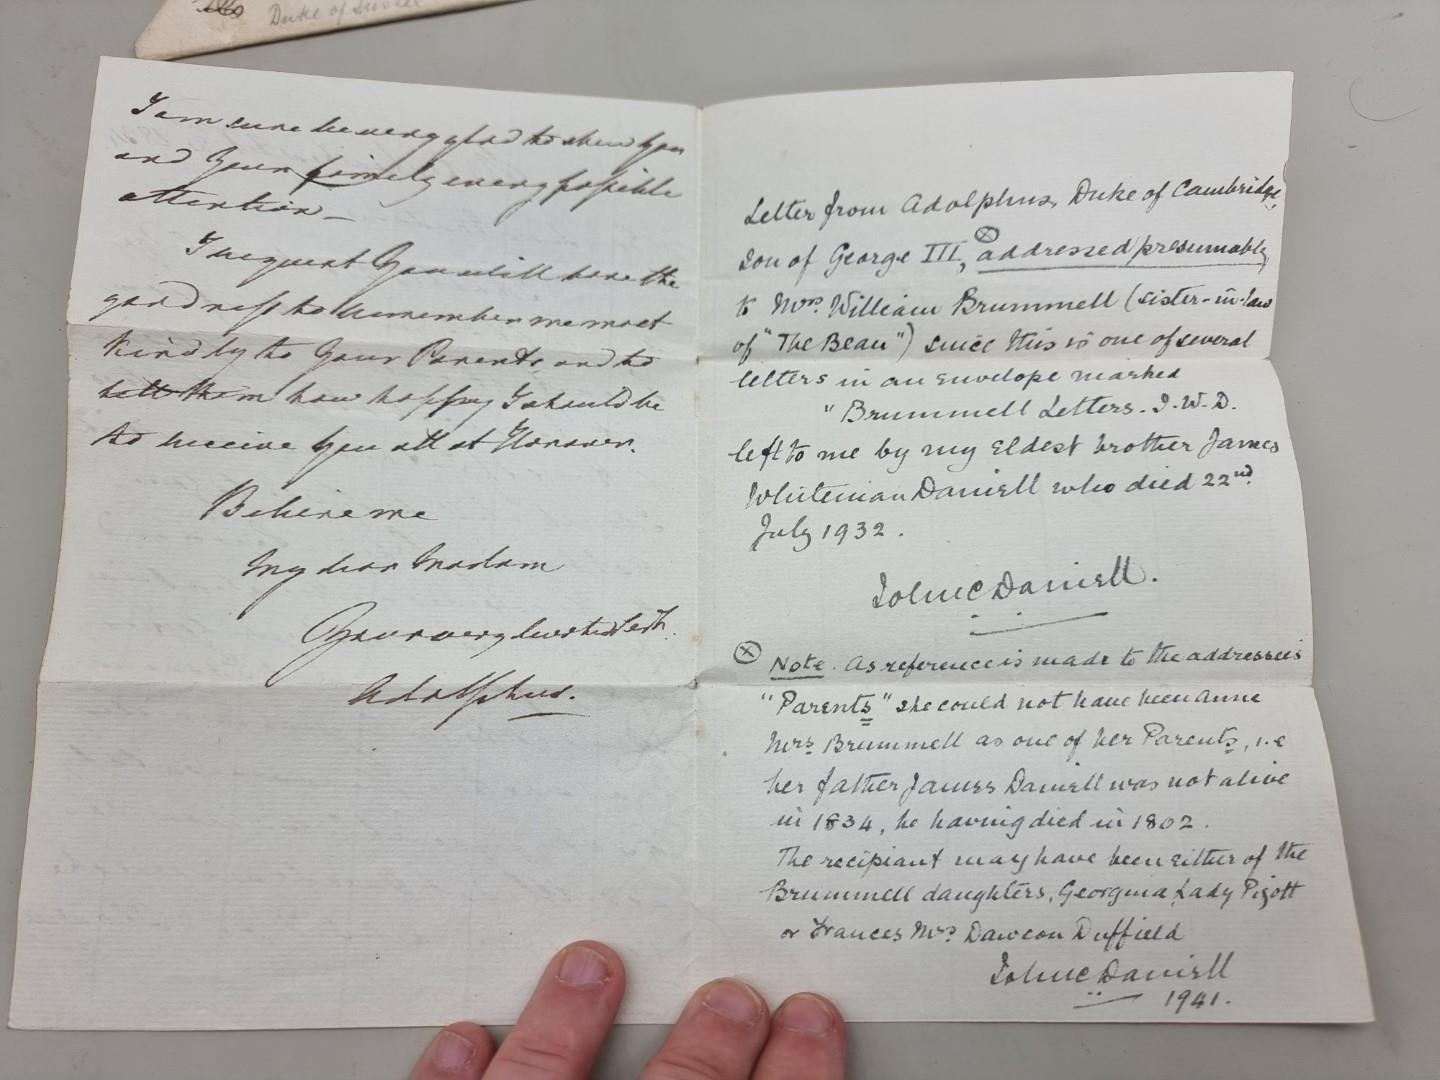 Duke of Sussex
I am sure be very glad to shew you
and Your family every possible
attention_
I request You will have the
goodness to remember me most
kindly to Your Parents, and to
tell them how happy I should be
to receive You all at Hanover.
Believe me
My dear Madam
Your very devoted
Adolphus.
Letter from Adolphus, Duke of Cambridge,
son of George III, ⊗ addressed/presumably
to Mrs. William Brummell (sister-in-law
of "The Beau") since this is one of several
letters in an envelope marked
"Brummell Letters. J.W.D.
left to me by my eldest brother James
Whiteman Daniell who died 22nd.
July 1932.
John C Daniell.
⊗ Note. As reference is made to the addressee's
"Parents" she could not have been Anne
Mrs Brummell as one of her Parents, i.e
her father James Daniell was not alive
in 1834, he having died in 1802.
The recipiant may have been either of the
Brummell daughters, Georgina, Lady Pigott
or Frances Mrs. Dawson Duffield
John C Daniell
1941.